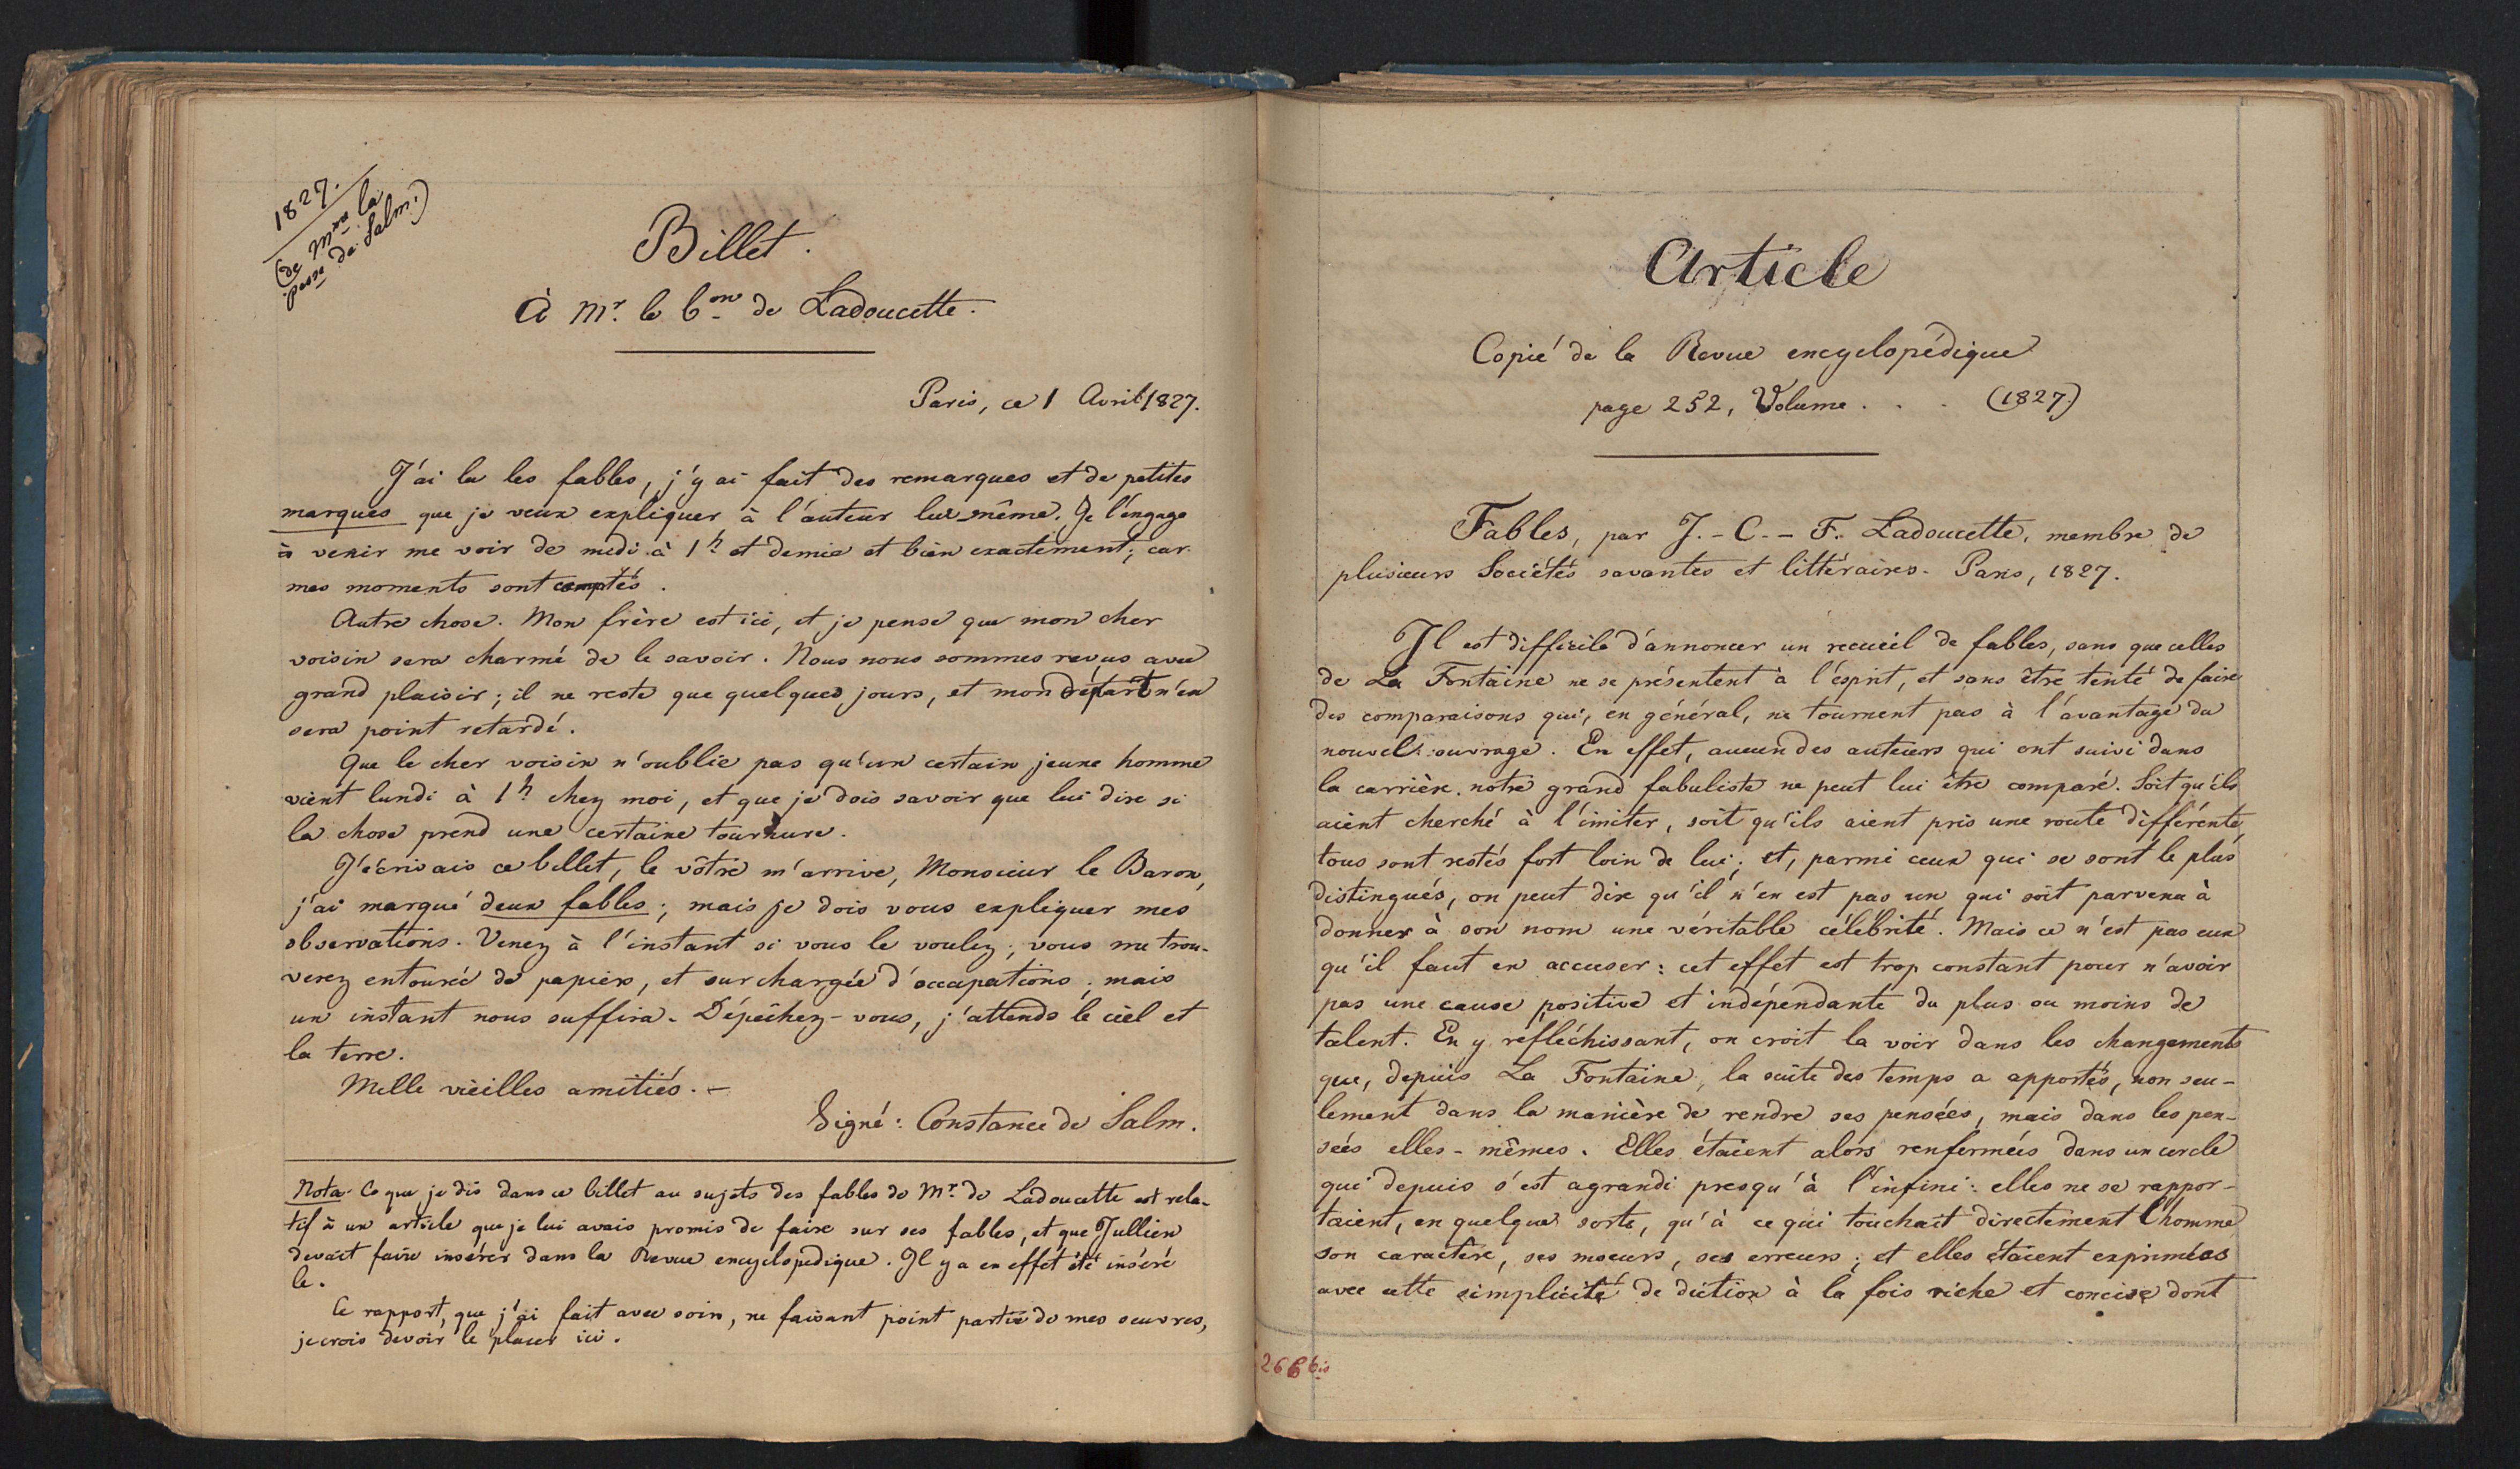 1827.
(de Mme la
psse de Salm.)
Billet.
À Mr. le bon de Ladoucette.
Paris, ce 1 Avril 1827.
J'ai lu les fables, j'y ai fait des remarques et de petites
marques que je veux expliquer à l'auteur lui même. Je l'engage
à venir me voir de midi à 1h et demie et bien exactement; car
mes moments sont comptés.
Autre chose. Mon frère est ici, et je pense que mon cher
voisin sera charmé de le savoir. Nous nous sommes revus avec
grand plaisir; il ne reste que quelques jours, et mon départ n'en
sera point retardé.
Que le cher voisin n'oublie pas qu'un certain jeune homme
vient lundi à 1h chez moi, et que je dois savoir que lui dire si
la chose prend une certaine tournure.
J'écrivais ce billet, le vôtre m'arrive, Monsieur le Baron,
j'ai marqué deux fables; mais je dois vous expliquer mes
observations. Venez à l'instant si vous le voulez; vous me trou-
verez entourée de papiers, et surchargée d'occupations; mais
un instant nous suffira. Dépêchez-vous, j'attends le ciel et
la terre.
Mille vieilles amitiés. -
Signé: Constance de Salm.
Nota Ce que je dis dans ce billet au sujets des fables de Mr. de Ladoucette est rela-
tif à un article que je lui avais promis de faire sur ses fables, et que Jullien
devait faire insérer dans la Revue encyclopédique. Il y a en effet été inséré
le.
Ce rapport, que j'ai fait avec soin, ne faisant point partie de mes oeuvres,
je crois devoir le placer ici.
Article
Copié de la Revue encyclopédique
page 252, Volume . . . (1827)
Fables, par J.-C.-F. Ladoucette, membre de
plusieurs Sociétés savantes et littéraires. Paris, 1827.
Il est difficile d'annoncer un recueil de fables, sans que celles
de La Fontaine ne se présentent à l'esprit, et sans être tenté de faire
des comparaisons qui, en général, ne tournent pas à l'avantage du
nouvel ouvrage. En effet, aucun des auteurs qui ont suivi dans
la carrière notre grand fabuliste ne peut lui être comparé. Soit qu'ils
aient cherché à l'imiter, soit qu'ils aient pris une route différente,
tous sont restés fort loin de lui; et, parmi ceux qui se sont le plus
distingués, on peut dire qu'il n'en est pas un qui soit parvenu à
donner à son nom une véritable célébrité. Mais ce n'est pas eux
qu'il faut en accuser: cet effet est trop constant pour n'avoir
pas une cause positive et indépendante du plus ou moins de
talent. En y réfléchissant, on croit la voir dans les changements
que, depuis La Fontaine, la suite des temps a apportés, non seu-
lement dans la manière de rendre ses pensées, mais dans les pen-
sées elles-mêmes. Elles étaient alors renfermées dans un cercle
qui depuis s'est agrandi presqu'à l'infini: elles ne se rappor-
taient, en quelque sorte, qu'à ce qui touchait directement l'homme
son caractère, ses moeurs, ses erreurs; et elles étaient exprimées
avec cette simplicité de diction à la fois riche et concise dont
266 bis